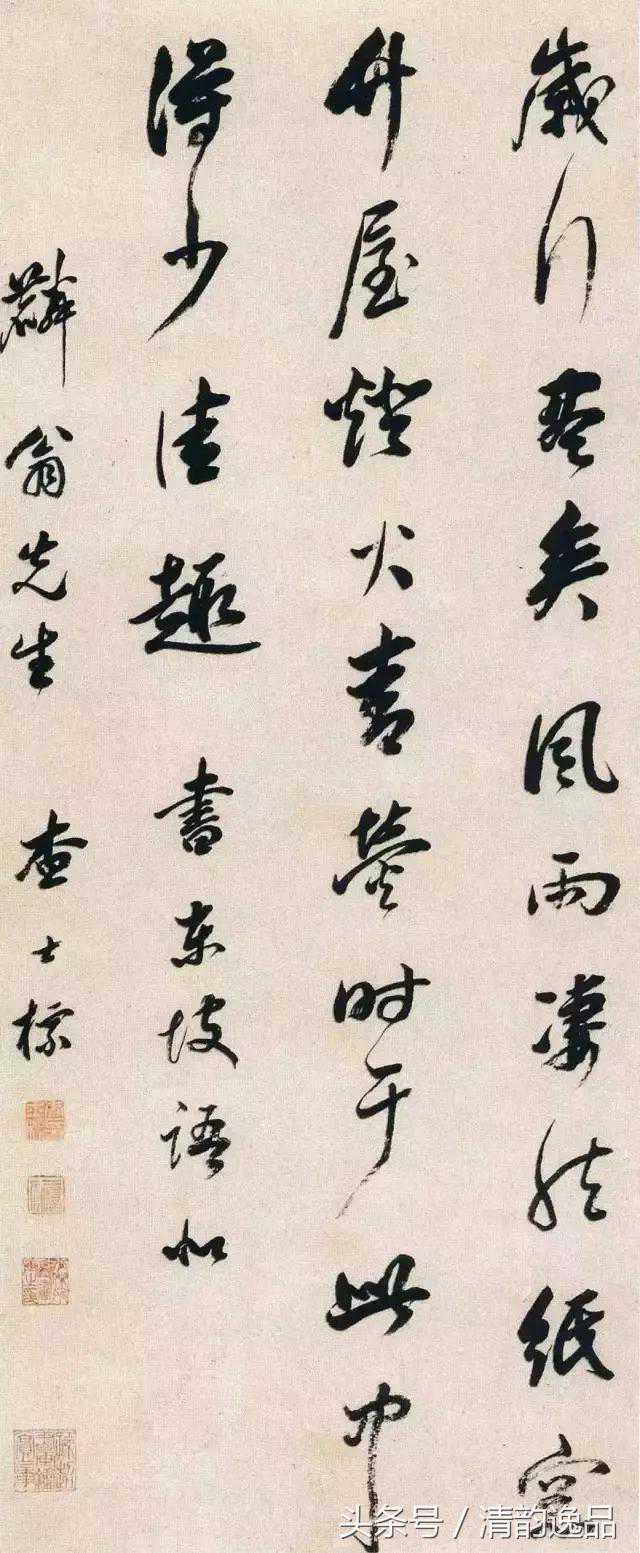 歲行盡矣風雨凄然紙窓
竹屋燈火青熒时于此中
得少佳趣 書東坡語似
麟翁先生 查士標
头条号 / 清韵逸品